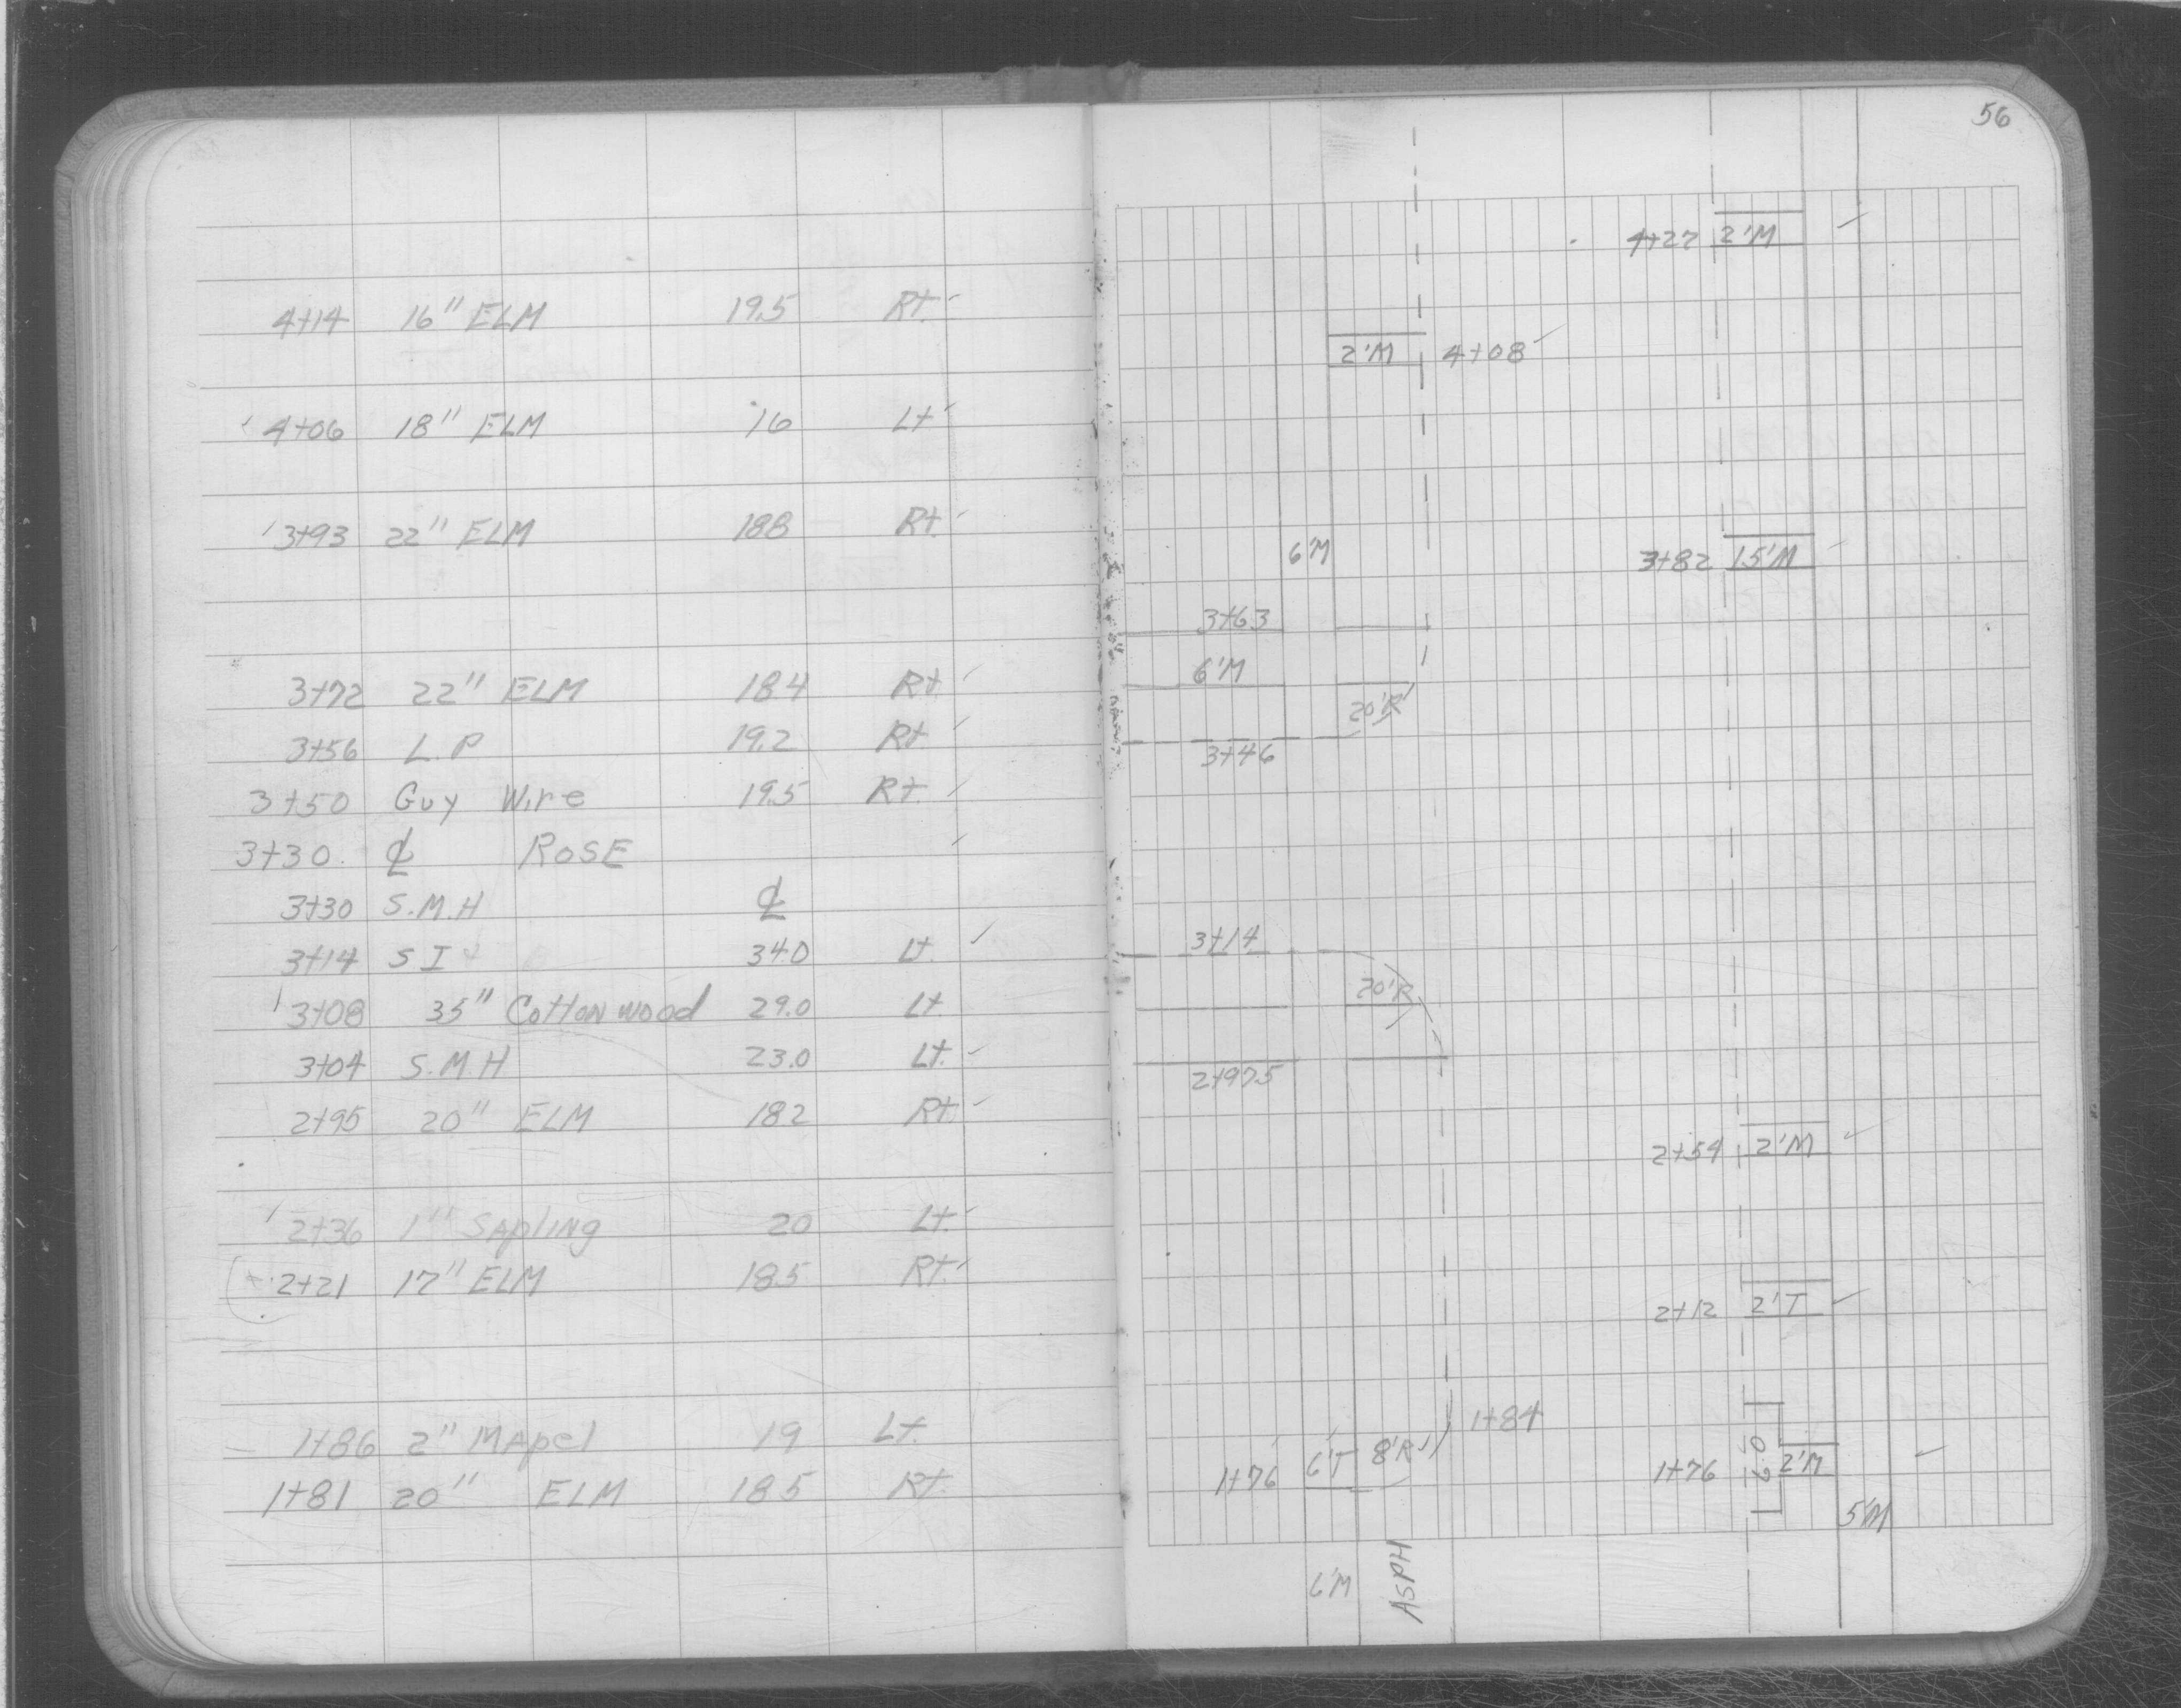 56
4+14 16" ELM 19.5 Rt.
4+06 18" ELM 16 Lt
3+93 22" ELM 18.8 Rt.
3+72 22" ELM 18.4 Rt.
3+56 L.P 19.2 Rt
3+50 Guy Wire 19.5 Rt.
3+30. ℄ ROSE
3+30 S.M.H ℄
3+14 S I 34.0 Lt.
3+08 35" Cottonwood 29.0 Lt.
3+04 S.M.H 23.0 Lt.
2+95 20" ELM 18.2 Rt.
2+36 1" SApliNg 20 Lt.
2+21 17" ELM 18.5 Rt.
1+86 2" MApel 19 Lt.
1+81 20" ELM 18.5 Rt.
4+27 2'M
2'M 4+08
6'M
3+82 15'M
3+63
6'M
20'R
3+46
3+14
20'R
2+97.5
2+54 2'M
2+12 2'T
1+84
1+76 6'T 8'R
1+76 6.0 2'M
5'M
6'M
ASPH